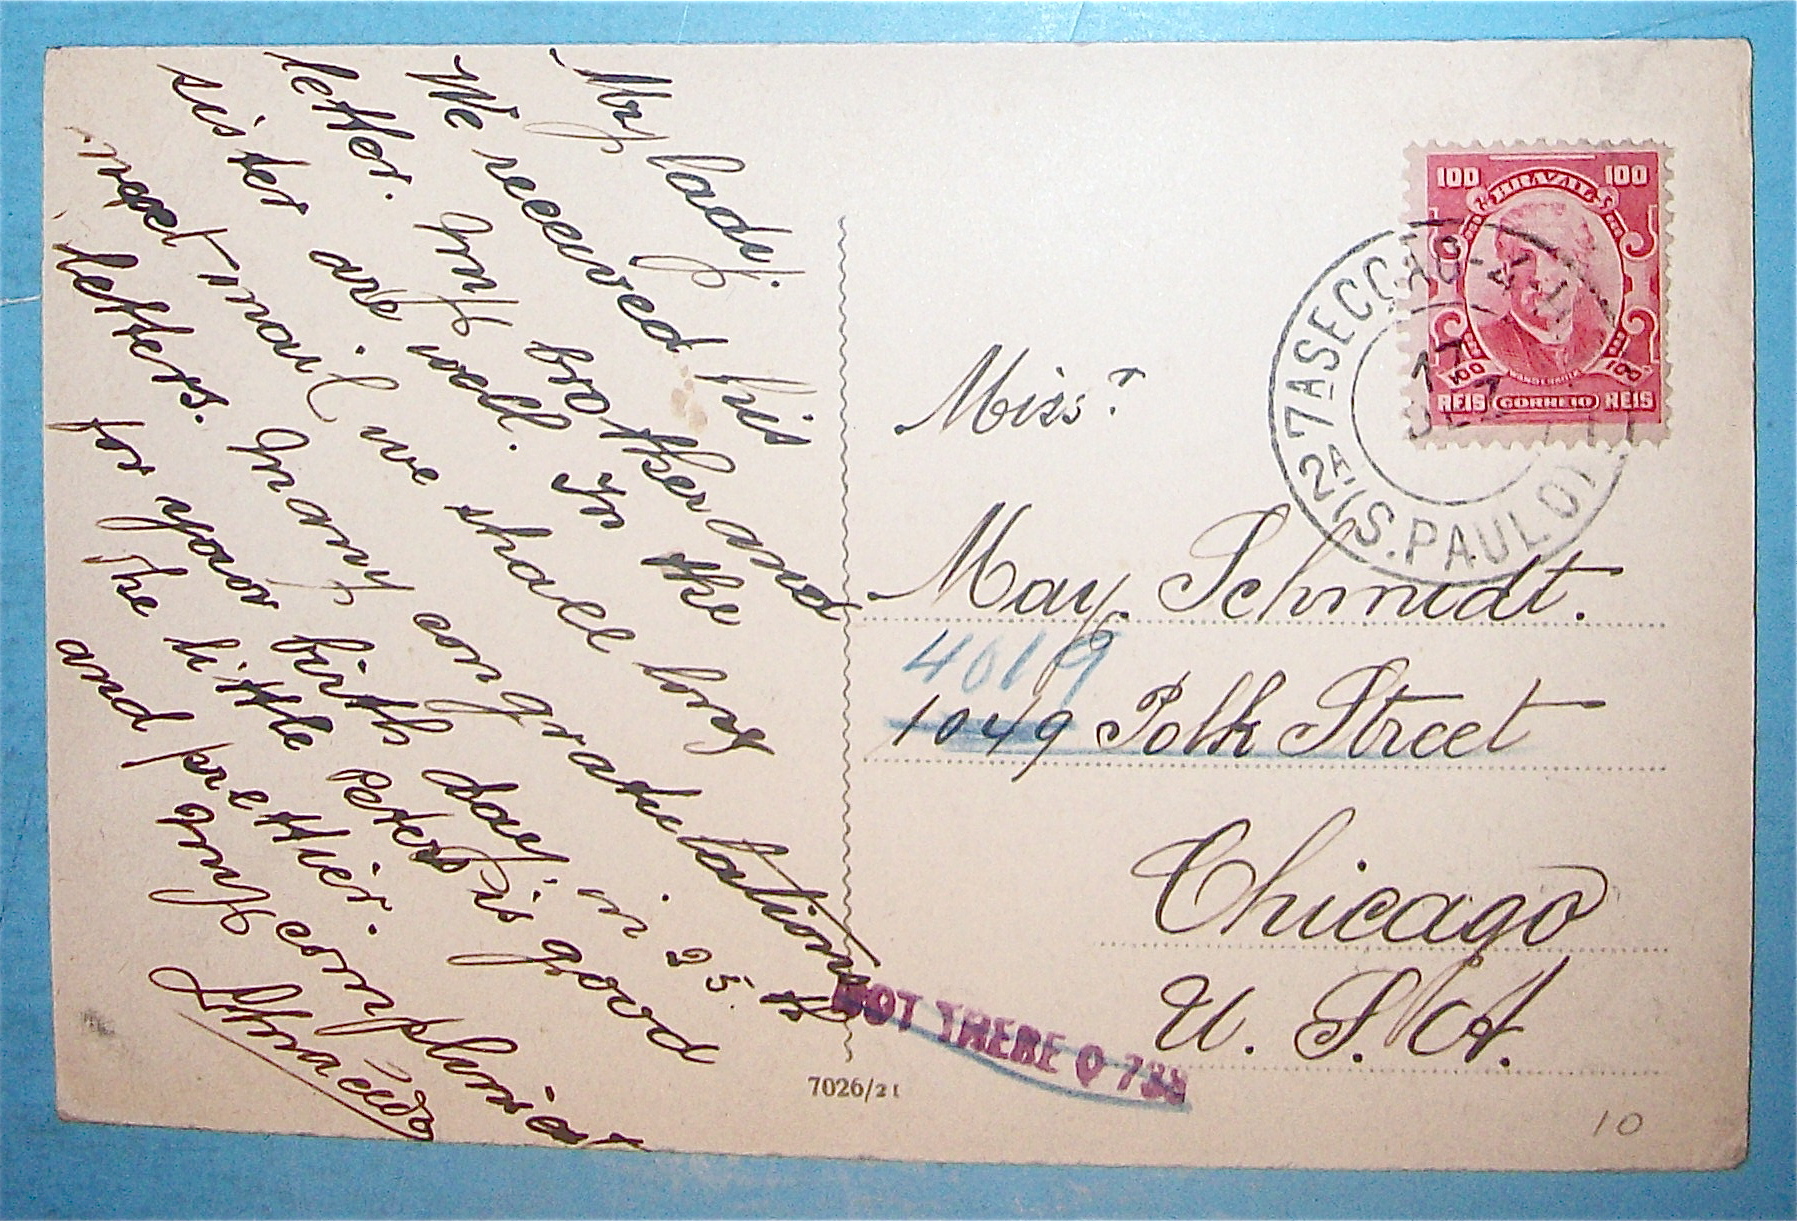 My lady.
We received his
letter. My brother and
sister are well. In the
next mail we shall long
letters. Many congratulations
for your birth day, in 25 th
The little Peters is good
and prettier.
My compliment
Miss.
May. Schmidt.
4019
1049 Polk Street
Chicago
U. S. A.
100 BRAZIL 100
100 WANDENKOLK 100
REIS CORREIO REIS
27A SECCAO
2A (S. PAULO)
NOT THERE Q 738
7026/21
10